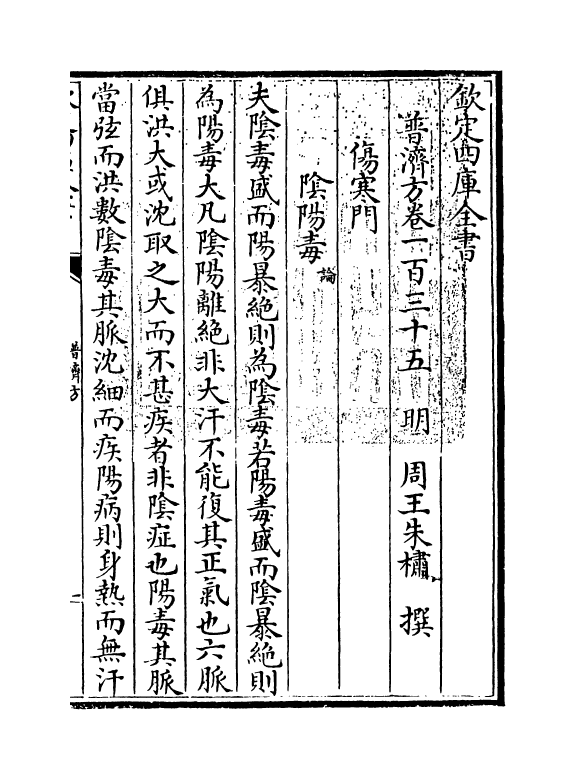 欽定四庫全書
普濟方卷一百三十五　明　周王朱橚　撰
傷寒門
陰陽毒論
夫陰毒盛而陽暴絶則為陰毒若陽毒盛而陰暴絶則
為陽毒大凡陰陽離絶非大汗不能復其正氣也六脈
俱洪大或沈取之大而不甚疾者非陰症也陽毒其脈
當弦而洪數陰毒其脈沈細而疾陽病則身熱而無汗
普濟方
一